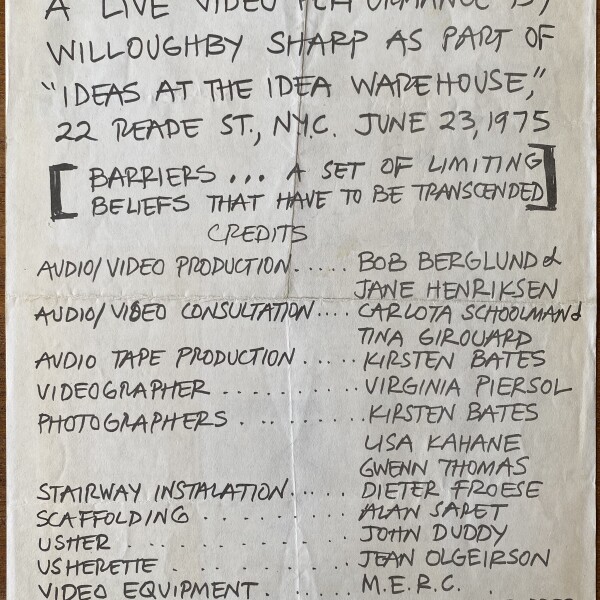 A LIVE VIDEO PERFORMANCE BY
WILLOUGHBY SHARP AS PART OF
"IDEAS AT THE IDEA WAREHOUSE,"
22 READE ST., N.Y.C. JUNE 23, 1975
[BARRIERS... A SET OF LIMITING
BELIEFS THAT HAVE TO BE TRANSCENDED]
CREDITS
AUDIO/VIDEO PRODUCTION..... BOB BERGLUND &
JANE HENRIKSEN
AUDIO/VIDEO CONSULTATION.... CARLOTA SCHOOLMAN &
TINA GIROUARD
AUDIO TAPE PRODUCTION ..... KIRSTEN BATES
VIDEOGRAPHER ......... VIRGINIA PIERSOL
PHOTOGRAPHERS ........ KIRSTEN BATES
LISA KAHANE
GWENN THOMAS
STAIRWAY INSTALATION..... DIETER FROESE
SCAFFOLDING ......... ALAN SARET
USHER ............ JOHN DUDDY
USHERETTE .......... JEAN OLGEIRSON
VIDEO EQUIPMENT ...... M.E.R.C.